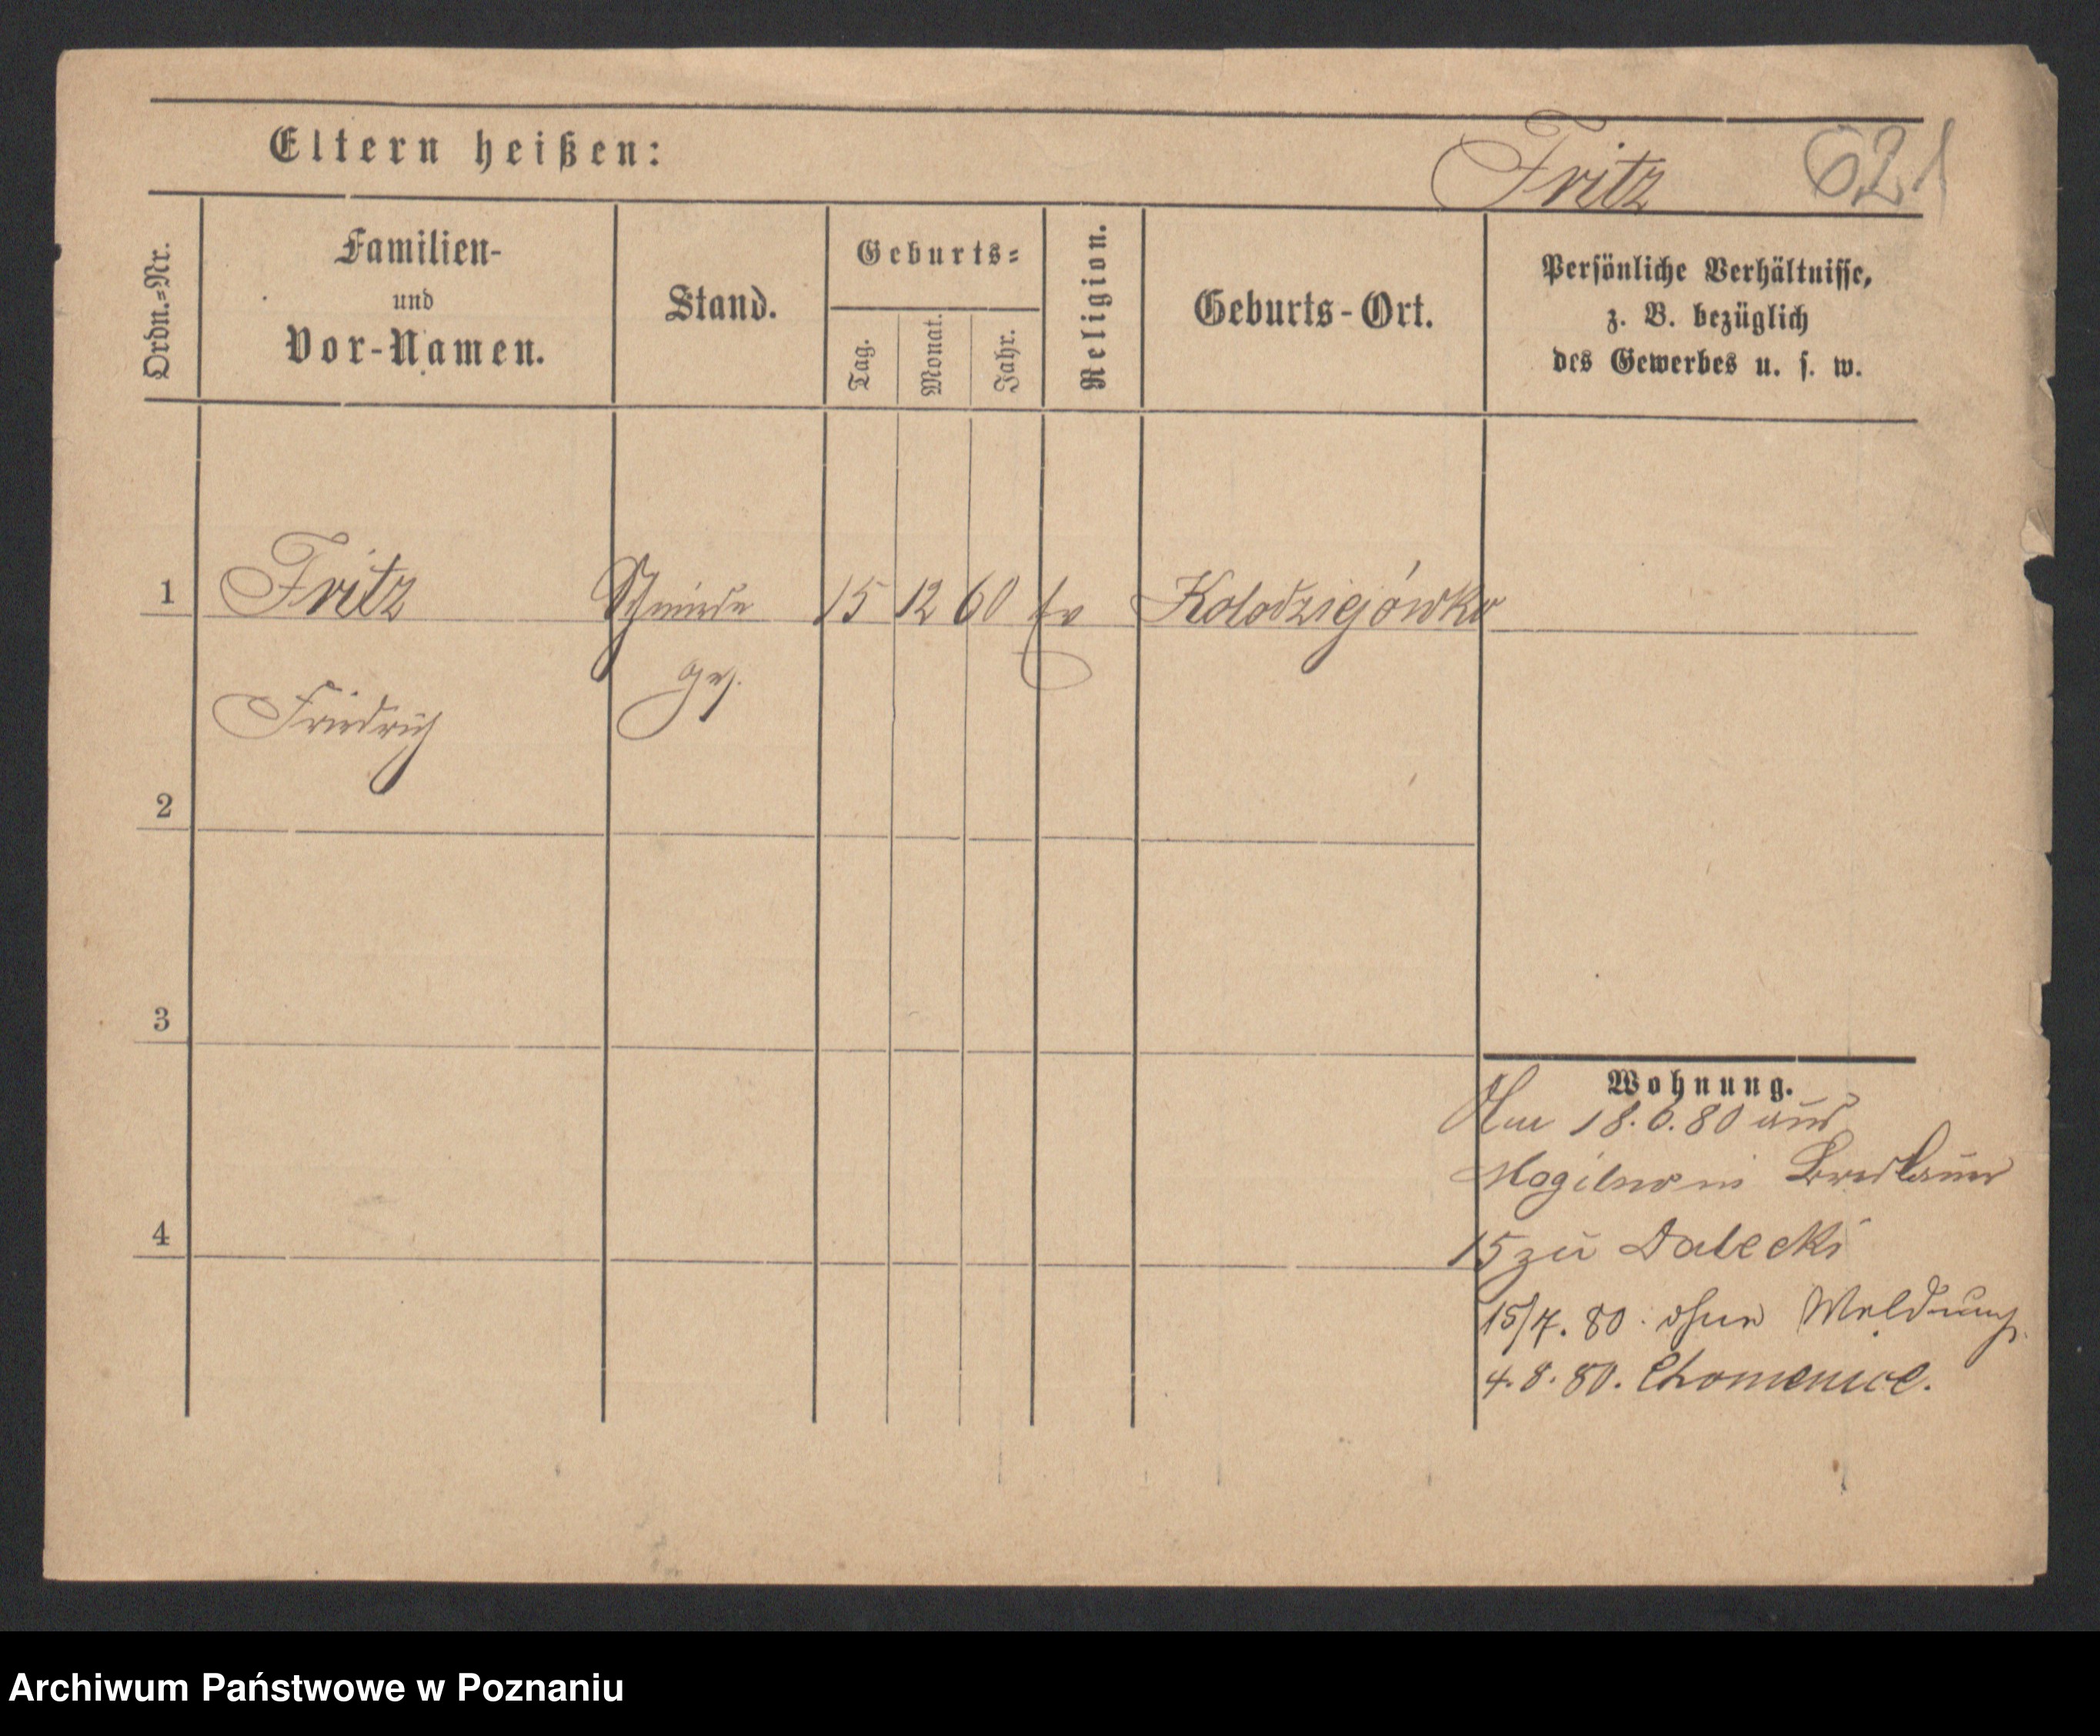 Eltern heißen:
Fritz 621
Ordn.=Nr.
Familien-
und
Vor-Namen.
Stand.
Geburts=
Tag.
Monat.
Jahr.
Religion.
Geburts-Ort.
Persönliche Verhältnisse,
z. B. bezüglich
des Gewerbes u. s. w.
1 Fritz Schmiede 15 12 60 ev Kolodziejówko
ges.
Friedrich
2
3
4
Wohnung.
Am 18.6.80 aus
Mogilno in
15 zu Dalecki
15/7. 80. ohne Meldung.
4. 8. 80. Chomencice.
Archiwum Państwowe w Poznaniu